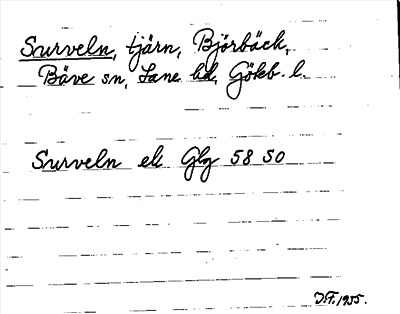 Surveln, tjärn, Björbäck,
Bäve sn, Lane hd, Göteb. l.
Surveln ek Glg 58 50
J.F. 1955.